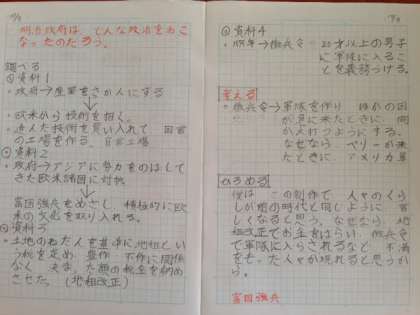 明治政府は、どんな政治をおこ
なったのだろう。
調べる
①資料1
・政府→産業をさかんにする
・欧米から技術を招く。
・進んだ技術を買い入れて 国営
の工場を作る。官営工場
②資料2
・政府→アジアに勢力をのばして
きた欧米諸国に対抗
富国強兵をめざし、積極的に欧
米の文化を取り入れる。
③資料3
・土地のねだんを基準に地租とい
う税を定め、豊作 不作に関係
なく 決まった額の税金を納め
させた。(地租改正)
④資料4
・明年→徴兵令 20才以上の男子
に軍隊に入るこ
とを義務づける。
考える
・徴兵令→軍隊を作り ほかの国
が急に来たときに、
がえるようにする。
なぜなら ペリーが来
たときに アメリカ
ひろめる
僕は この制作で 人々のくら
しが昔の時代と同じように
しくなると思う。なぜなら、地
租改正でお金をはらい、徴兵令
で軍隊に入らされるなど 不満
をもった人々が現れると思うか
ら。
富国強兵